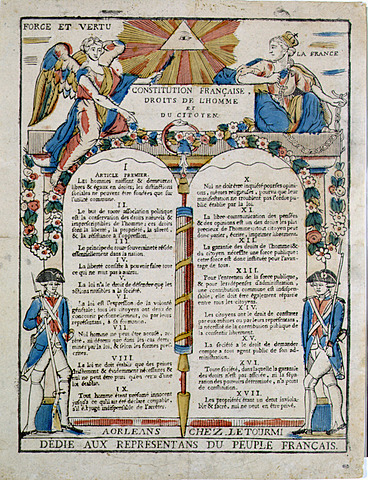 FORCE ET VERTU
LA FRANCE
CONSTITUTION FRANÇAISE,
DROITS DE L'HOMME
ET
DU CITOYEN.
I
ARTICLE PREMIER.
Les hommes naissent & demeurent
libres & égaux en droits; les distinctions
sociales ne peuvent être fondées que sur
l'utilité commune.
II.
Le but de toute association politique
est la conservation des droits naturels &
imprescriptibles de l'homme; ces droits
sont la liberté, la propriété, la sûreté
& la résistance à l'oppression.
III
Le principe de toute souveraineté réside
essentiellement dans la nation.
La liberté consiste à pouvoir faire tout
ce qui ne nuit pas à autrui.
La loi n'a le droit de défendre que les
actions nuisibles à la société.
VI
La loi est l'expression de la volonté
générale; tous les citoyens ont droit de
concourir personnellement, ou par leurs
représentans, à sa formation.
VII
Nul homme ne peut être accusé, arrêté,
ni détenu que dans les cas déterminés
par la loi, & selon les formes
VIII
La loi ne doit établir que des peines
strictement & évidemment nécessaires &
nul ne peut être puni qu'en vertu d'une
loi établie.
IX
Tout homme étant présumé innocent
jusqu'à ce qu'il ait été déclaré coupable,
s'il est jugé indispensable de l'arrêter.
X.
Nul ne doit être inquiété pour ses opinions,
mêmes religieuses, pourvu que leur
manifestation ne troublent pas l'ordre public
établie par la loi.
XI.
La libre communication des pensées
& des opinions est un des droits les plus
précieux de l'homme; tout citoyen peut
donc parler, écrire, imprimer librement.
XII.
La garantie des droits de l'homme & du
citoyen nécessite une force publique:
cette force est donc instituée pour l'avantage
de tous.
XIII.
Pour l'entretien de la force publique,
& pour les dépenses d'administration,
une contribution commune est indispensable,
elle doit être également répartie
entre tous les citoyens.
XIV.
Les citoyens ont le droit de constater
par eux mêmes ou par leurs représentans,
la nécessité de la contribution publique de
la consentir librement.
XV.
La société a le droit de demander
compte à tout agent public de son administration.
XVI.
Toute société, dans laquelle la garantie
des droits n'est pas assurée, ni la séparation
des pouvoirs déterminée, n'a point
de constitution.
XVII.
Les propriétés étant un droit inviolable
& sacré, nul ne peut en être privé.
A ORLEANS CHEZ LETOURMI
DÉDIÉ AUX REPRESENTANS DU PEUPLE FRANÇAIS.